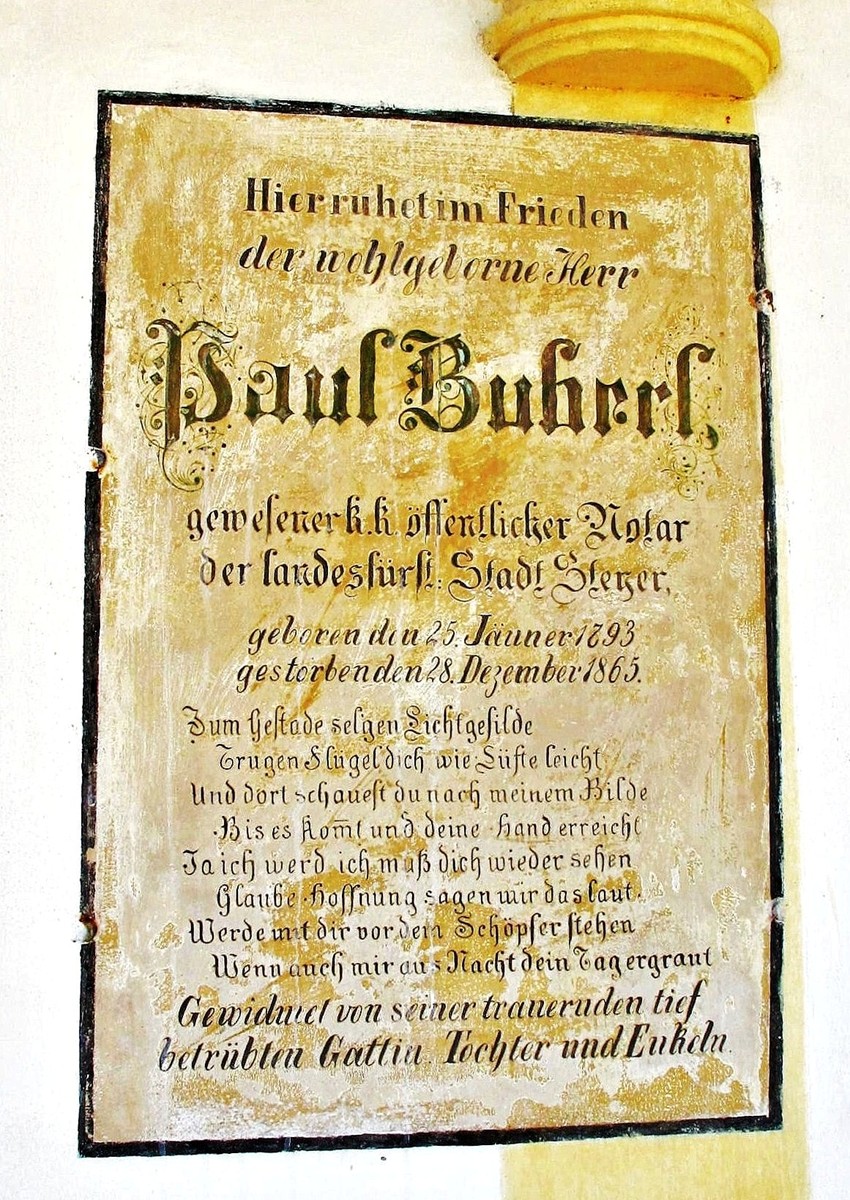 Hier ruhet im Frieden
der wohlgeborne Herr
Paul Buberl,
gewesener k.k. öffentlicher Notar
der landesfürstl: Stadt Steyer,
geboren den 25. Jänner 1793
gestorben den 28. Dezember 1865.
Zum Gestade selgen Lichtgefilde
Trugen Flügel dich wie Lüfte leicht
Und dort schauest du nach meinem Bilde
Bis es kom̄t und deine Hand erreicht
Ja ich werd ich muß dich wieder sehen
Glaube Hoffnung sagen mir das laut.
Werde mit dir vor dem Schöpfer stehen
Wenn auch mir aus Nacht dein Tag ergraut
Gewidmet von seiner trauernden tief
betrübten Gattin. Tochter und Enkeln.